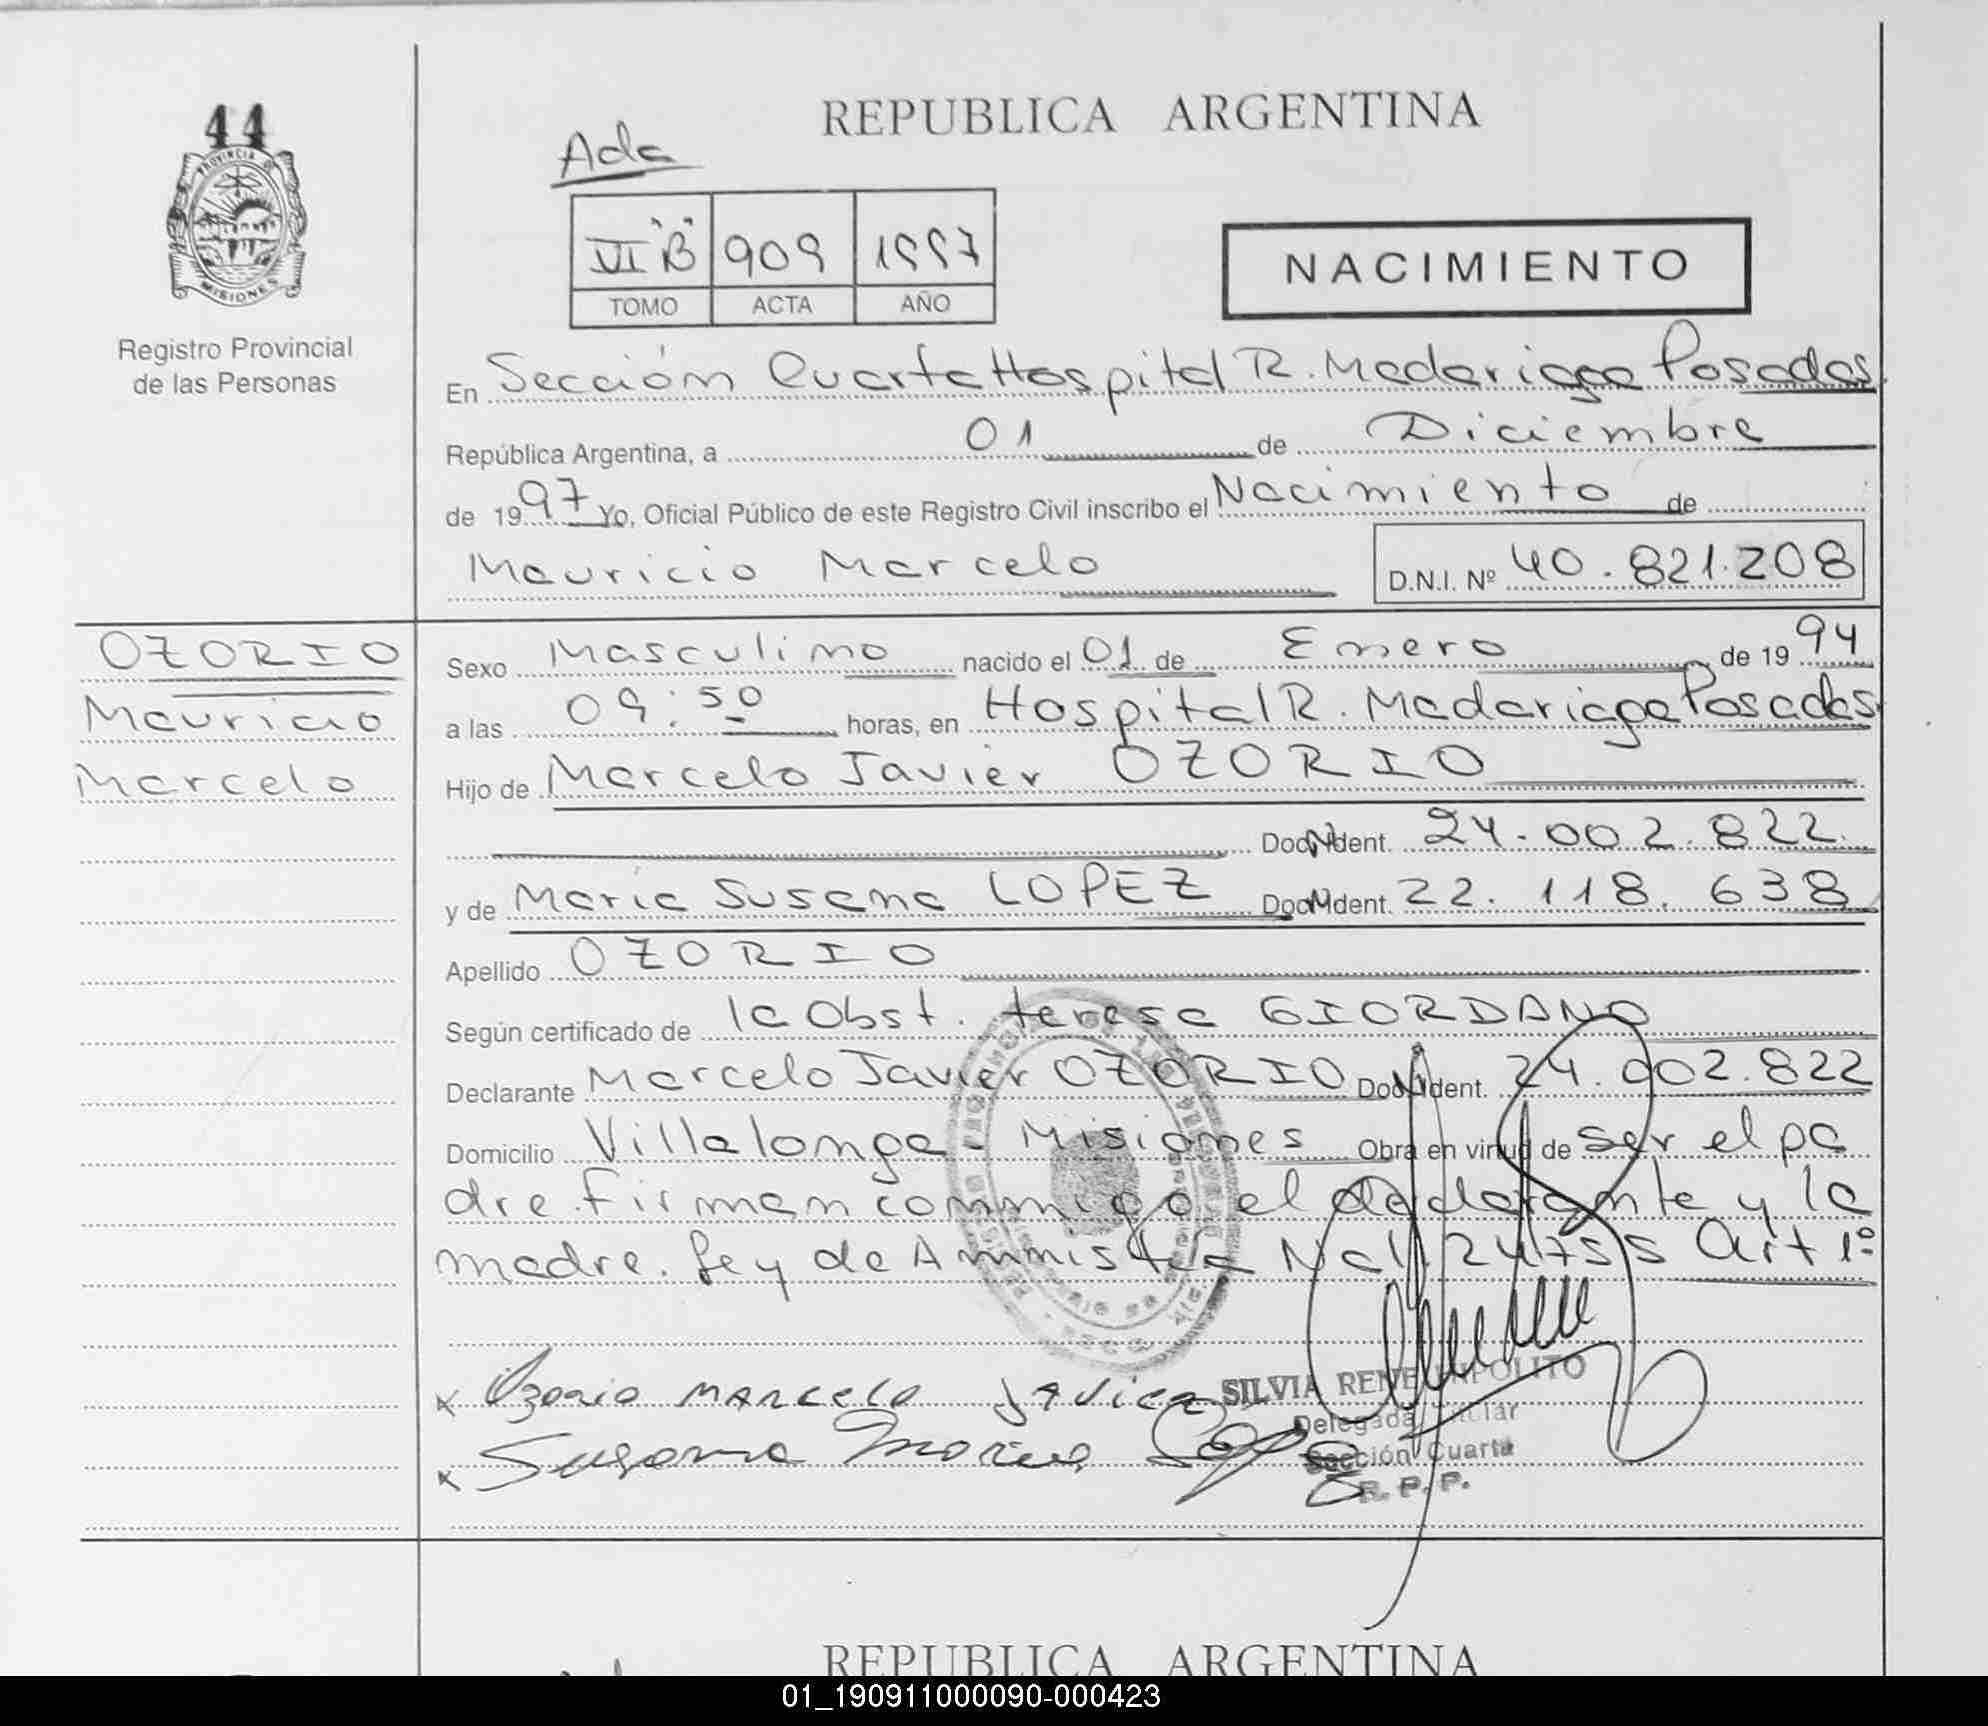 44
PROVINCIA DE
MISIONES
Registro Provincial
de las Personas
REPUBLICA ARGENTINA
Ada
VI "B" 909 1997
TOMO ACTA AÑO
NACIMIENTO
En Sección Cuarta Hospital R. Madariaga Posadas
República Argentina, a 01 de Diciembre
de 1997 Yo, Oficial Público de este Registro Civil inscribo el Nacimiento de
Mauricio Marcelo D.N.I. Nº 40.821.208
OZORIO
Mauricio
Marcelo
Sexo Masculino nacido el 01 de Enero de 1994
a las 09:50 horas, en Hospital R. Madariaga Posadas
Hijo de Marcelo Javier OZORIO
Doc. Ident. 24.002.822
y de Maria Susana LOPEZ Doc. Ident. 22.118.638
Apellido OZORIO
Según certificado de la Obst. teresa GIORDANO
Declarante Marcelo Javier OZORIO Doc. Ident. 24.002.822
Domicilio Villalonga - Misiones Obra en virtud de ser el pa
dre. Firman conmigo el declarante y la
madre. Ley de Amnistia Nal. 24755 Art 1º
x Ozorio MARCELO JAVIER
x Susana Maria Lopez
SILVIA RENE HIPOLITO
Delegada Titular
Sección Cuarta
R. P. P.
REPUBLICA ARGENTINA
01_190911000090-000423